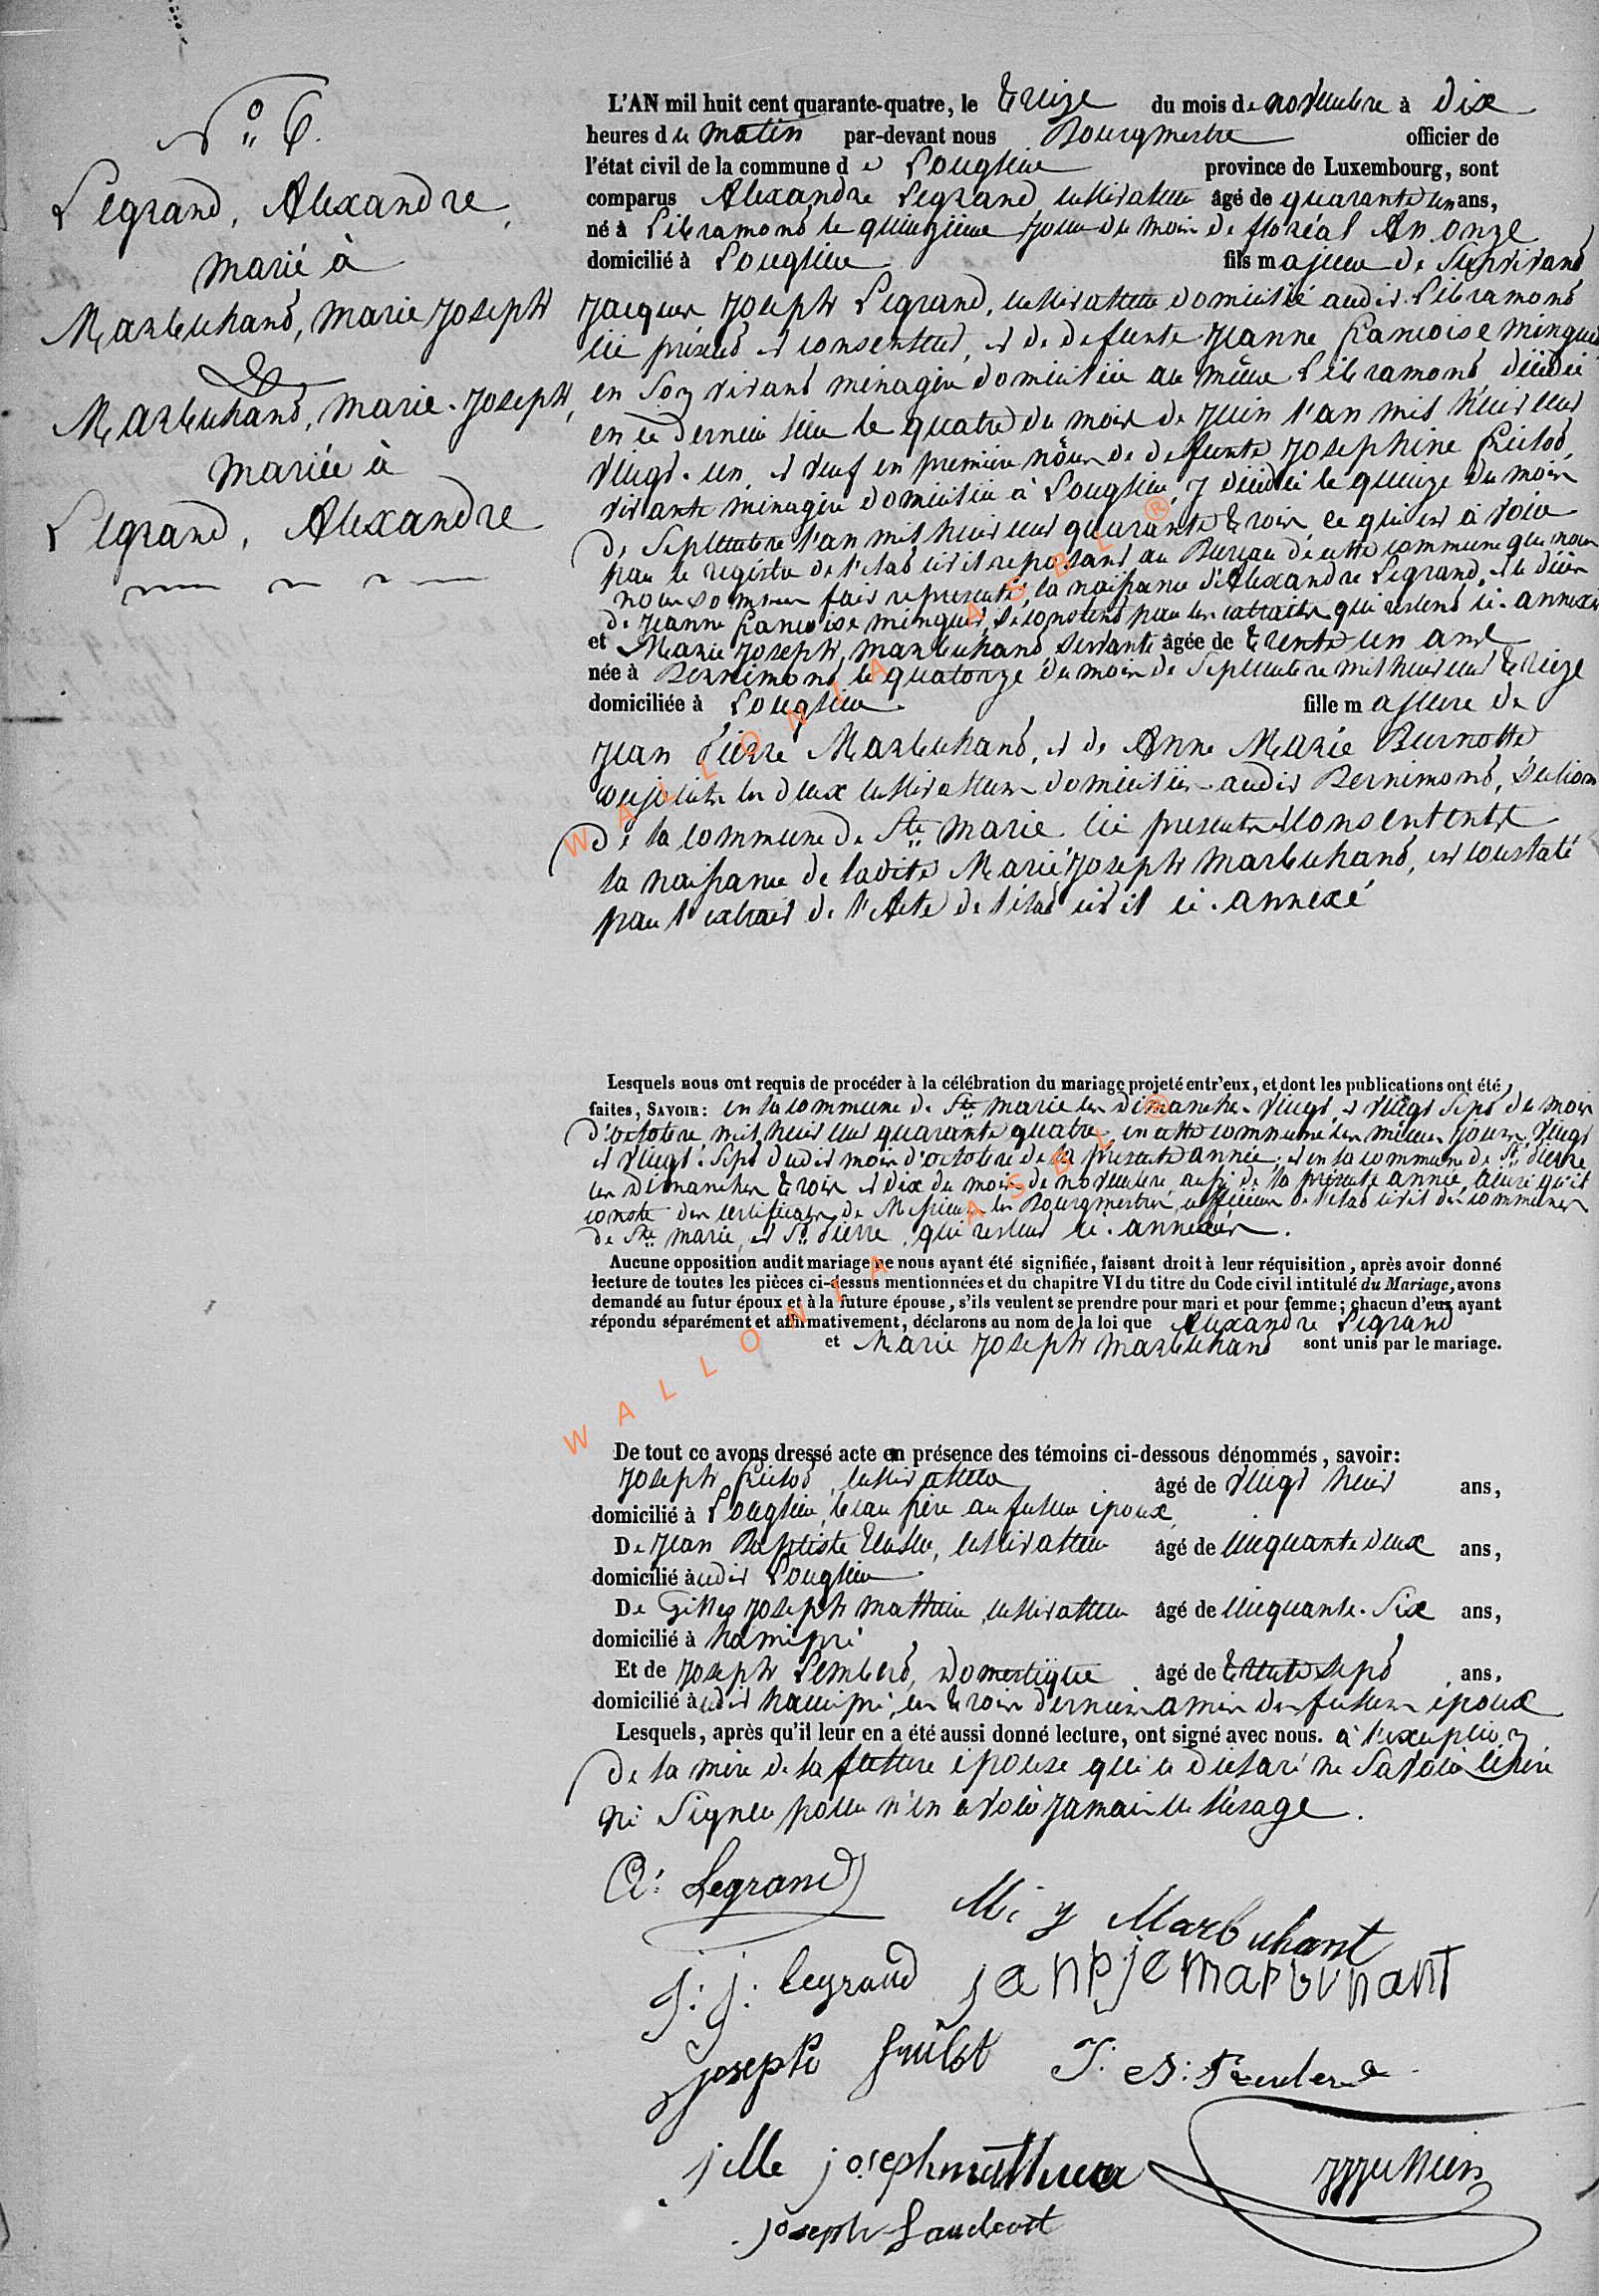 N° 6.
Legrand, Alexandre,
marié à
Marbuchand, Marie Joseph
&
Marbuchand, Marie-Joseph,
mariée à
Legrand, Alexandre
L'AN mil huit cent quarante-quatre, le treize du mois de novembre à dix
heures du matin par-devant nous Bourgmestre officier de
l'état civil de la commune de Longlier province de Luxembourg, sont
comparus Alexandre Legrand, cultivateur âgé de quarante un ans,
né à Libramont le quinzième jour du mois de floréal An onze
domicilié à Longlier fils majeur de Survivant
Jacques Joseph Legrand, cultivateur domicilié audit Libramont
ici présent et consentant, et de defunte Jeanne Francoise Minguet
en son vivant ménagère domiciliée au même Libramont décédée
en ce dernier lieu le quatre du mois de Juin l'an mil huit cent
vingt-un, et veuf en première nôces de defunte Josephine Guillot,
vivante ménagère domiciliée à Longlier, y décédée le quinze du mois
de Septembre l'an mil huit cent quarante trois ce qui est à voir
par le registre de l'etat civil reposant au Bureau de cette commune que nous
nous sommes fait representer, la naissance d'Alexandre Legrand, et le décès
de Jeanne Francoise Minguet, se constent par les extraits qui restent ci-annexés
et Marie Joseph Marbuchand Servante âgée de trente un ans
née à Bernimont le quatorze du mois de Septembre mil huit cent treize
domiciliée à Longlier fille majeure de
Jean Pierre Marbuchand, et de Anne Marie Burnotte
conjoints les deux cultivateurs domiciliés audit Bernimont, Section
de la commune de Ste Marie ici presents et consentents
la naissance de ladite Marie Joseph Marbuchand, est constaté
par l'extrait de l'Acte de l'état civil ci-annexé
Lesquels nous ont requis de procéder à la célébration du mariage projeté entr'eux, et dont les publications ont été
faites, SAVOIR: en la commune de Ste Marie les dimanches vingt et vingt sept du mois
d'octobre mil huit cent quarante quatre, en cette commune les mêmes jours vingt
et vingt-sept dudit mois d'octobre de la presente année, et en la commune de St Pierre
les dimanches trois et dix du mois de novembre aussi de la présente année, ainsi qu'il
conste des certificats de Messieurs les Bourgmestres, officiers de l'etat civil des communes
de Ste Marie, et St Pierre, qui restent ci-annexés.
Aucune opposition audit mariage ne nous ayant été signifiée, faisant droit à leur réquisition, après avoir donné
lecture de toutes les pièces ci-dessus mentionnées et du chapitre VI du titre du Code civil intitulé du Mariage, avons
demandé au futur époux et à la future épouse, s'ils veulent se prendre pour mari et pour femme; chacun d'eux ayant
répondu séparément et affirmativement, déclarons au nom de la loi que Alexandre Legrand
et Marie Joseph Marbuchand sont unis par le mariage.
De tout ce avons dressé acte en présence des témoins ci-dessous dénommés, savoir:
Joseph Guillot, cultivateur âgé de vingt huit ans,
domicilié à Longlier, beau frère au futur époux,
De Jean Baptiste cultivateur âgé de cinquante deux ans,
domicilié audit Longlier
De Gilles Joseph Mathieu cultivateur âgé de cinquante-six ans,
domicilié à hamipré,
Et de Joseph Lambert, domestique âgé de trente sept ans,
domicilié audit hamipré, les trois derniers amis des futurs époux
Lesquels, après qu'il leur en a été aussi donné lecture, ont signé avec nous. à l'exception
de la mère de la future épouse qui a déclaré ne savoir écrire
ni Signer pour n'en avoir jamais eu l'usage.
A: Legrand
M: J Marbuchant
J: J: Legrand
jeanpjemarbuhant
joseph guillot
jille joseph mathieu
WALLONIA ASBL ®
WALLONIA ASBL ®